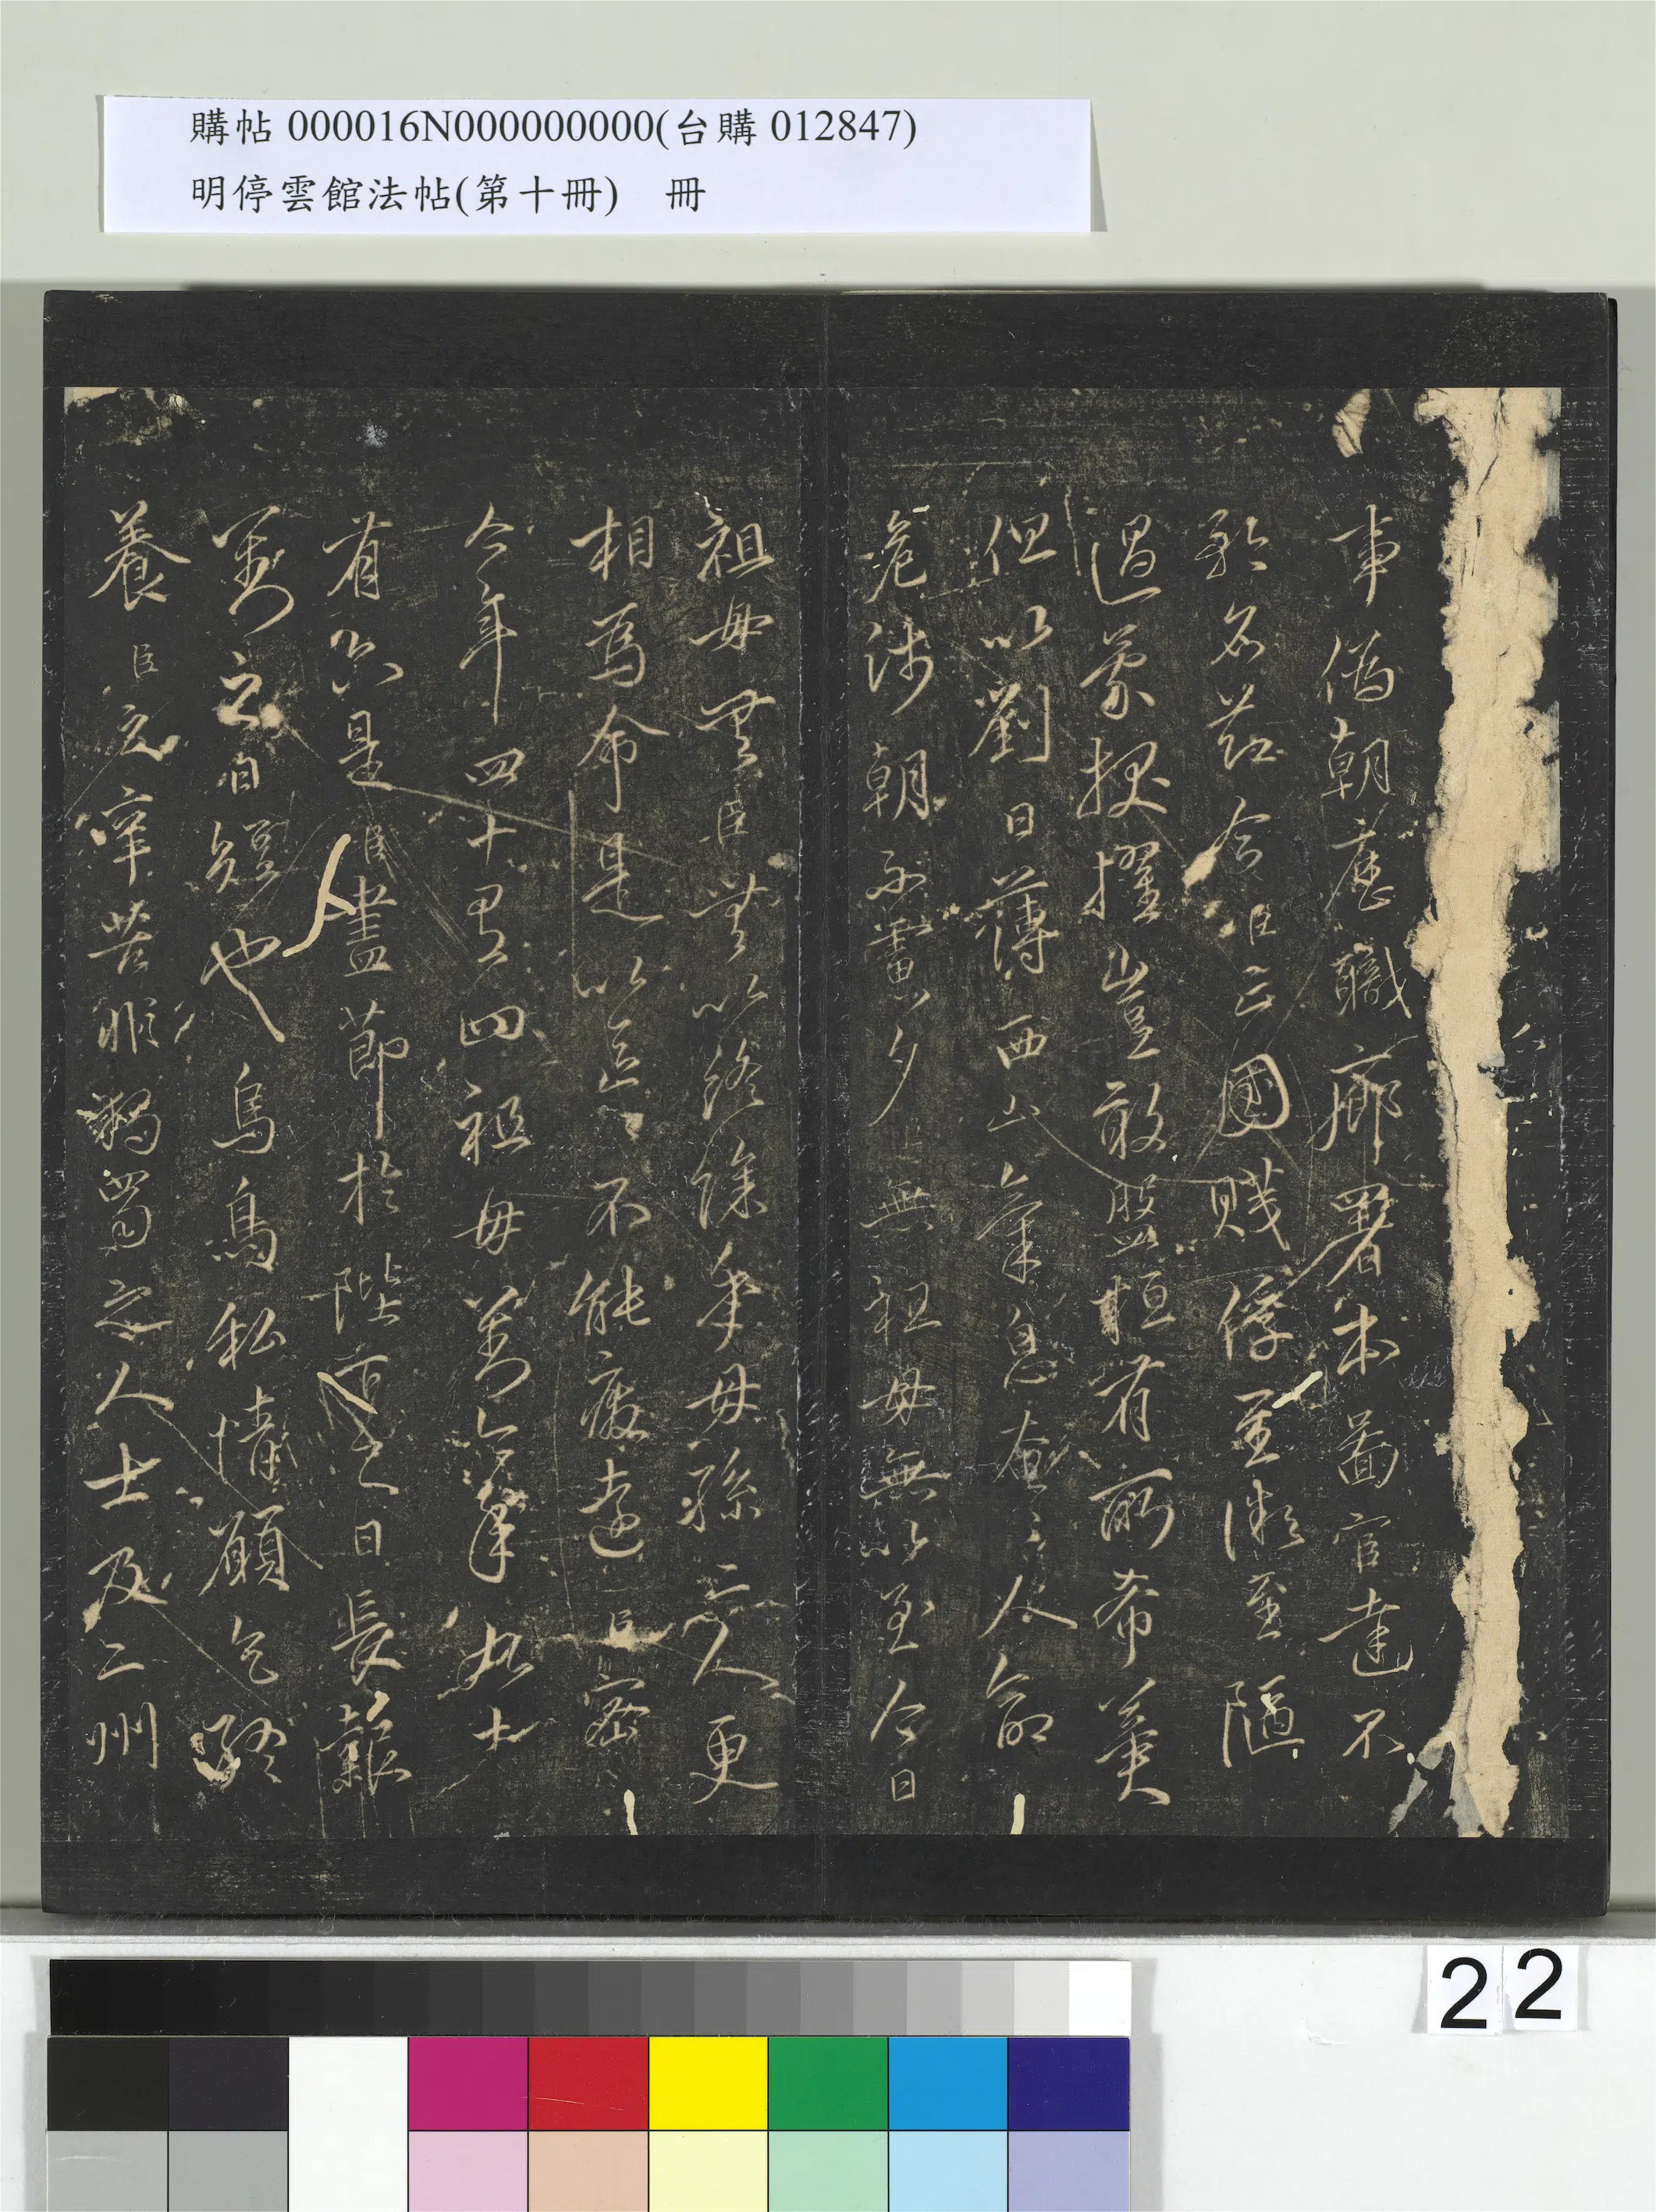 購帖 000016N000000000(台購 012847)
明停雲館法帖(第十冊)　冊
事偽朝歷職廊署本啚官達不
矜名莭今臣亡國賤俘至微至陋
過蒙拔擢豈敢盤桓有所希冀
但以劉日薄西山氣息奄〻人命
危淺朝不慮夕臣無祖母無以至今日
祖母無臣無以終餘年母孫二人更
相為命是以區〻不能廢遠臣密
今年四十有四祖母劉今年九十
有六是臣盡節於陛下之日長報
劉之日短也烏鳥私情願乞終
養臣之辛苦非獨蜀之人士及二州
22